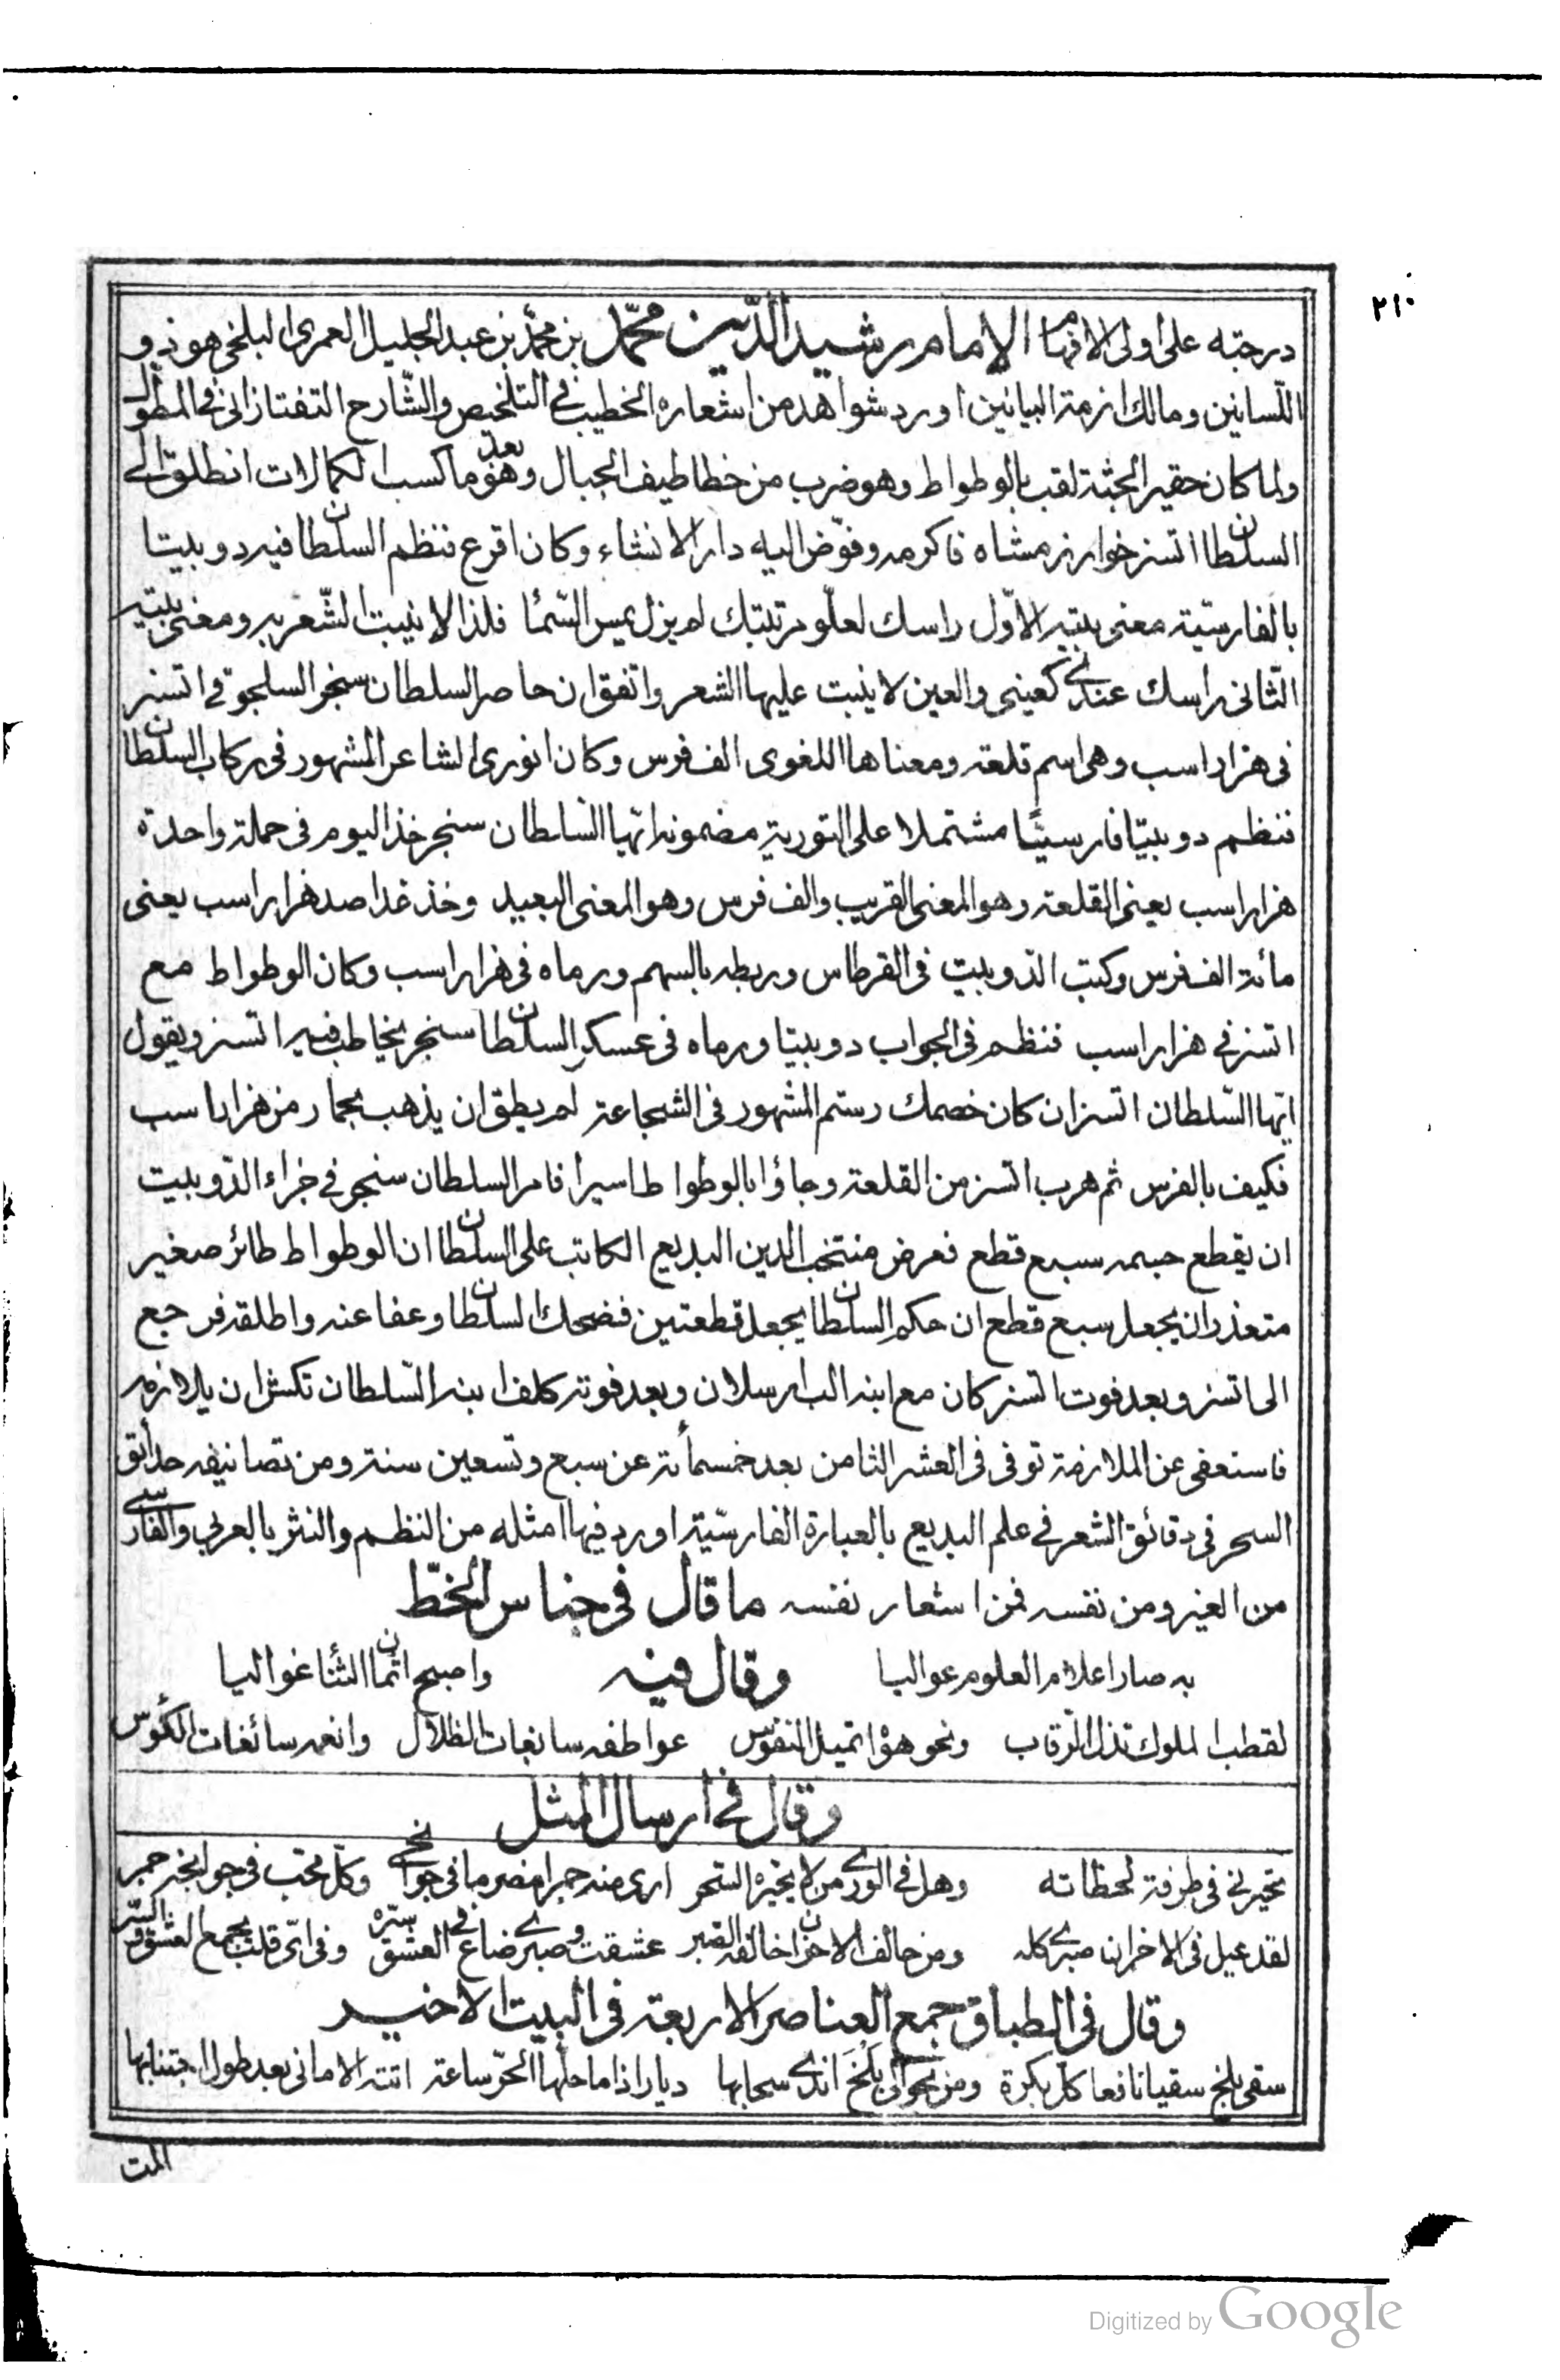 ٢١٠
درجته على اولى الافهام الإمام رشيد الدّين محمّد بن محمّد بن عبد الجليل العمري البلخي هو ذو
اللّسانين ومالك ازمة البيانين اورد شواهد من اشعاره الخطيب في التلخيص والشّارح التفتازاني في المطول
ولما كان حقير الجثة لقب بالوطواط وهو ضرب من خطاطيف الجبال وهو بعد ما كسب الكمالات انطلق الى
السلطان اتسز خوارزمشاه فاكرمه وفوّض اليه دار الانشاء وكان اقرع فنظم السلطان فيه دوبيتا
بالفارسيّة معنى بيته الاوّل راسك لعلو مرتبتك لم يزل يمس السّماء فلذا لا ينبت الشّعر به ومعنى بيته
الثاني راسك عندي كعيني والعين لا ينبت عليها الشعر واتفق ان حاصر السلطان سنجر السلجوقي اتسز
في هزاراسب وهي اسم قلعة ومعناها اللغوي الف فرس وكان انوري الشاعر المشهور في ركاب السلطان
فنظم دوبيتا فارسيّا مشتملا على التورية مضمونه ايّها السّلطان سنجر خذ اليوم في حملة واحدة
هزاراسب يعني القلعة وهو المعنى القريب والف فرس وهو المعنى البعيد وخذ غدا صد هزاراسب يعني
مائة الف فرس وكتب الدوبيت في القرطاس وربطه بالسهم ورماه في هزاراسب وكان الوطواط مع
اتسز في هزاراسب فنظم في الجواب دوبيتا ورماه في عسكر السلطان سنجر يخاطب فيه اتسز ويقول
ايّها السّلطان اتسز ان كان خصمك رستم المشهور في الشجاعة لم يطق ان يذهب بحمار من هزاراسب
فكيف بالفرس ثم هرب اتسز من القلعة وجاؤا بالوطواط اسيرا فامر السلطان سنجر في جزاء الدّوبيت
ان يقطع جسمه سبع قطع فعرض منتخب الدين البديع الكاتب على السلطان ان الوطواط طائر صغير
متعذر ان يجعل سبع قطع ان حكم السلطان يجعل قطعتين فضحك السلطان وعفا عنه واطلقه فرجع
الى اتسز وبعد فوت اتسز كان مع ابنه الب ارسلان وبعد فوته كلف ابنه السّلطان تكش ان يلازمه
فاستعفى عن الملازمة توفي في العشر الثامن بعد خمسمائة عن سبع وتسعين سنة ومن تصانيفه حدائق
السحر في دقائق الشعر في علم البديع بالعبارة الفارسيّة اورد فيها امثلة من النظم والنثر بالعربي والفارسي
من الغير ومن نفسه فمن اشعار نفسه ما قال في جناس الخطّ
به صار اعلام العلوم عواليا واصبح اثمان الثنا غواليا وقال فيه
لقطب الملوك تذل الرّقاب ونحو هواه تميل النفوس عواطفه سابغات الظلال وانعمه سائغات الكؤس
وقال في ارسال المثل
تحيرني في طرفة لحظاته وهل في الورى من لا يحيره السحر ارى منه جمرا مضرما في جوانحي وكل محب في جوانحه جمر
لقد عيل في الاحزان صبري كله ومن حالف الاحزان خالفه الصبر عشقت وصبري ضاع في العشق سره وفي ايّ قلب يجمع العشق والسّر
وقال في الطباق جمع العناصر الاربعة في البيت الاخير
سقى بلخ سقيا نافعا كل بكرة ومن نحو الى بلخ اندى سحابها ديار اذا ما حلّها الحرّ ساعة اتته الاماني بعد طول اجتنابها
المت
Digitized by Google